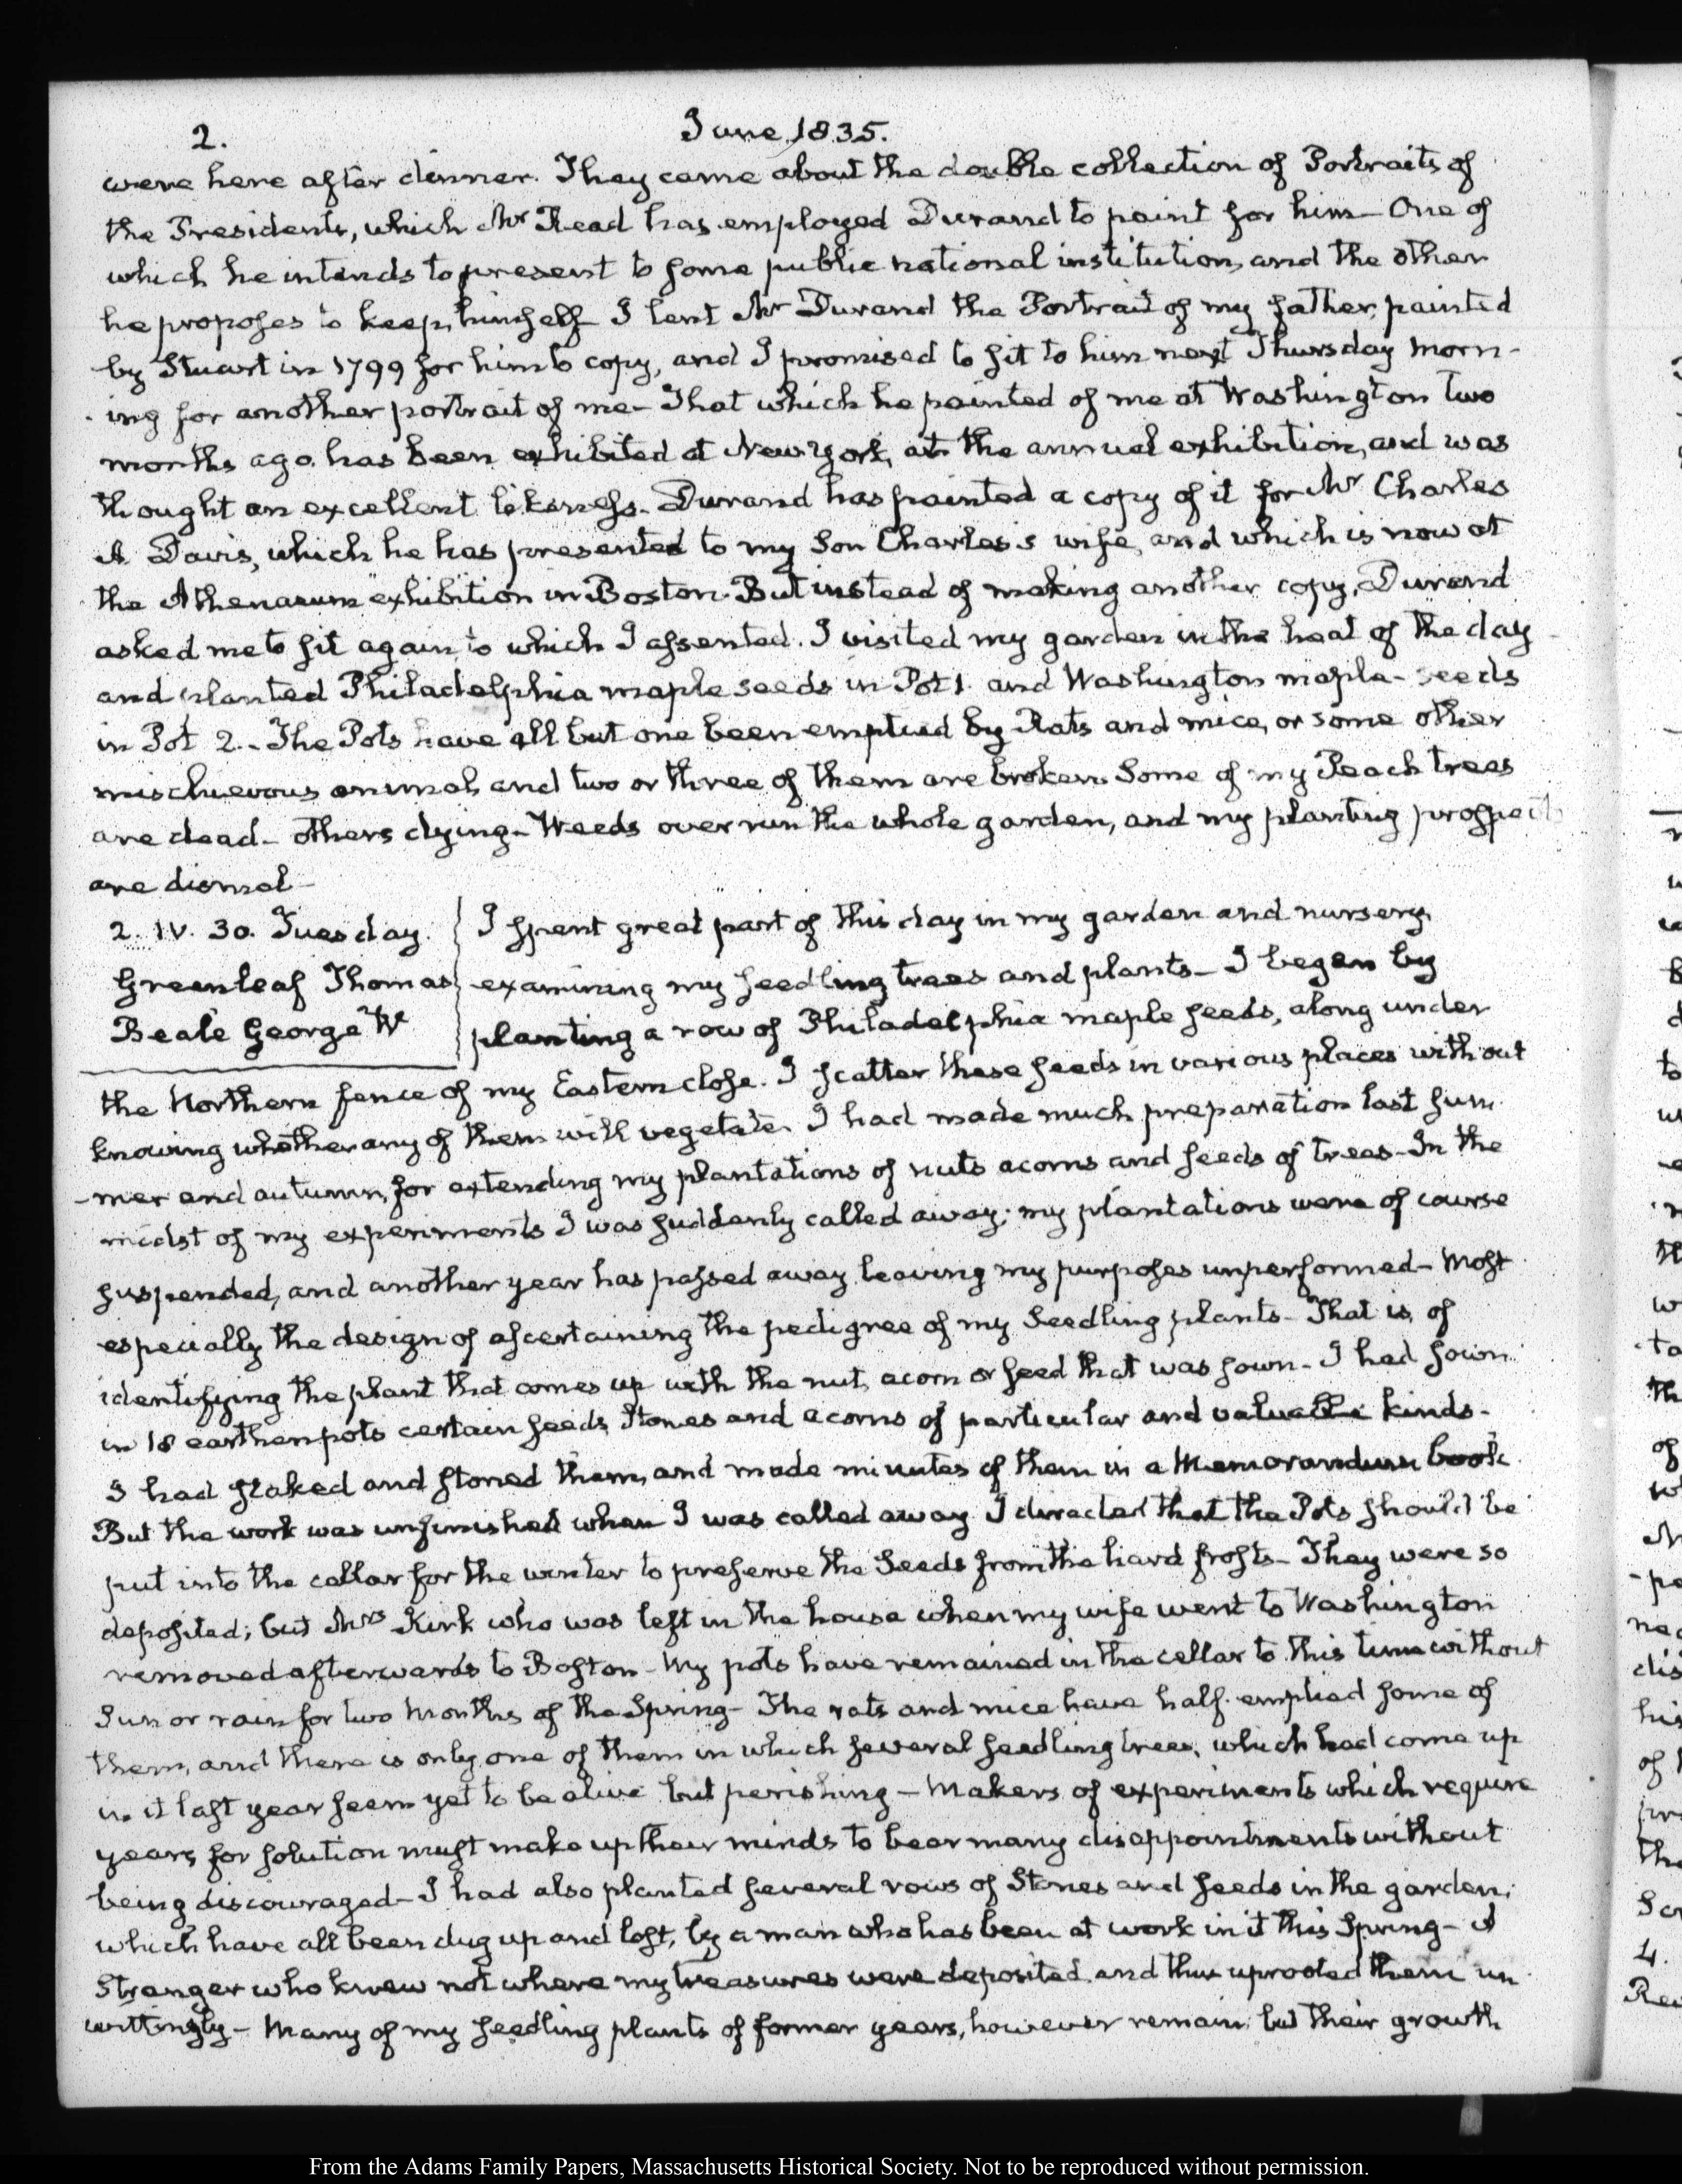 2.
June 1835.
were here after dinner. They came about the double collection of Portraits of
the Presidents, which Mr Read has employed Durand to paint for him — One of
which he intends to present to some public national institution, and the other
he proposes to keep himself. I lent Mr Durand the Portrait of my father, painted
by Stuart in 1799 for him to copy, and I promised to sit to him next Thursday Morn-
-ing for another portrait of me — That which he painted of me at Washington two
months ago has been exhibited at New York, at the annual exhibition, and was
thought an excellent likeness. Durand has painted a copy of it for Mr Charles
A Davis, which he has presented to my Son Charles's wife, and which is now at
the Athenaeum exhibition in Boston. But instead of making another copy, Durand
asked me to sit again, to which I assented. I visited my garden in the heat of the day
and planted Philadelphia maple seeds in Pot 1. and Washington maple-seeds
in Pot 2. — The Pots have all but one been emptied by Rats and mice, or some other
mischievous animal, and two or three of them are broken. Some of my Peach trees
are dead — others dying — Weeds overrun the whole garden, and my planting prospects
are dismal —
2. IV. 30. Tuesday.
Greenleaf Thomas
Beale George W
I spent great part of this day in my garden and nursery,
examining my seedling trees and plants — I began by
planting a row of Philadelphia maple seeds, along under
the Northern fence of my Eastern close. I scatter these seeds in various places without
knowing whether any of them will vegetate. I had made much preparation last sum
-mer and autumn, for extending my plantations of nuts acorns and seeds of trees — In the
midst of my experiments I was suddenly called away; my plantations were of course
suspended, and another year has passed away leaving my purposes unperformed — Most
especially the design of ascertaining the pedigree of my Seedling plants — That is, of
identifying the plant that comes up with the nut, acorn or seed that was sown — I had sown
in 18 earthen pots certain seeds, Stones and acorns of particular and valuable kinds —
I had staked and stoned them, and made minutes of them in a Memorandum book.
But the work was unfinished when I was called away. I directed that the Pots should be
put into the cellar for the winter to preserve the Seeds from the hard frosts — They were so
deposited; but Mrs Kirk who was left in the house when my wife went to Washington
removed afterwards to Boston — My pots have remained in the cellar to this time without
Sun or rain for two Months of the Spring — The rats and mice have half emptied some of
them, and there is only one of them in which several seedling trees, which had come up
in it last year seem yet to be alive but perishing — Makers of experiments which require
years for solution must make up their minds to bear many disappointments without
being discouraged — I had also planted several rows of Stones and seeds in the garden;
which have all been dug up and lost, by a man who has been at work in it this Spring — A
Stranger who knew not where my treasures were deposited and thus uprooted them un
wittingly — Many of my seedling plants of former years, however remain, but their growth
From the Adams Family Papers, Massachusetts Historical Society. Not to be reproduced without permission.